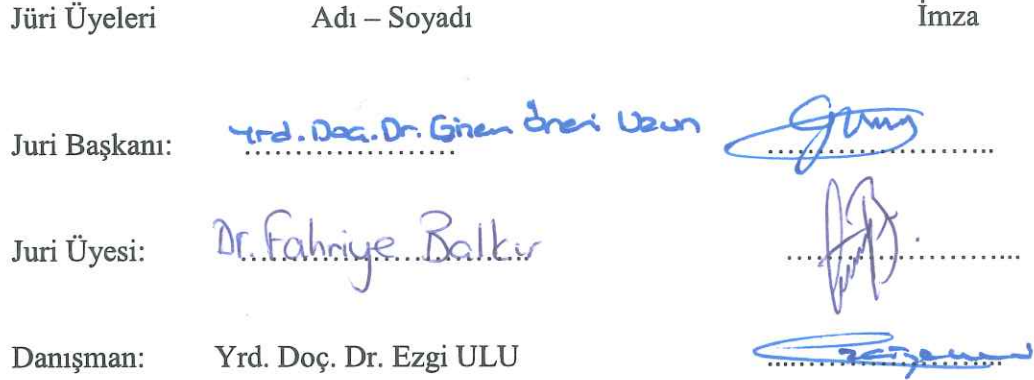 Jüri Üyeleri Adı – Soyadı İmza
Juri Başkanı: Yrd. Doç. Dr. Gizem Öneri Uzun
Juri Üyesi: Dr. Fahriye Balkır
Danışman: Yrd. Doç. Dr. Ezgi ULU